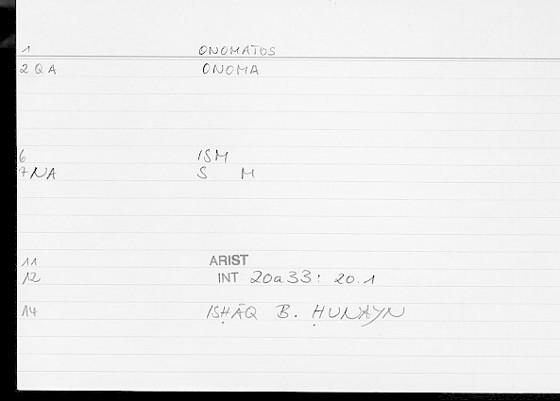 1 ONOMATOS
2 QA ONOMA
6 ISM
7 NA S M
11 ARIST
12 INT 20a33: 20.1
14 ISḤĀQ B. ḤUNAYN